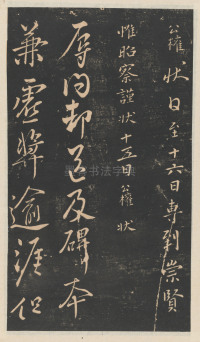 公權狀日至十六日專劉崇賢
惟昭察謹狀十五日公權狀
辱問卻送及碑本
兼虛獎逾涯但